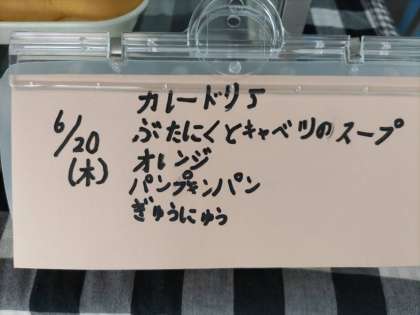 カレードリう
6/20
(木)
ぶたにくとキャベツのスープ
オレンジ
パンプキンパン
ぎゅうにゅう